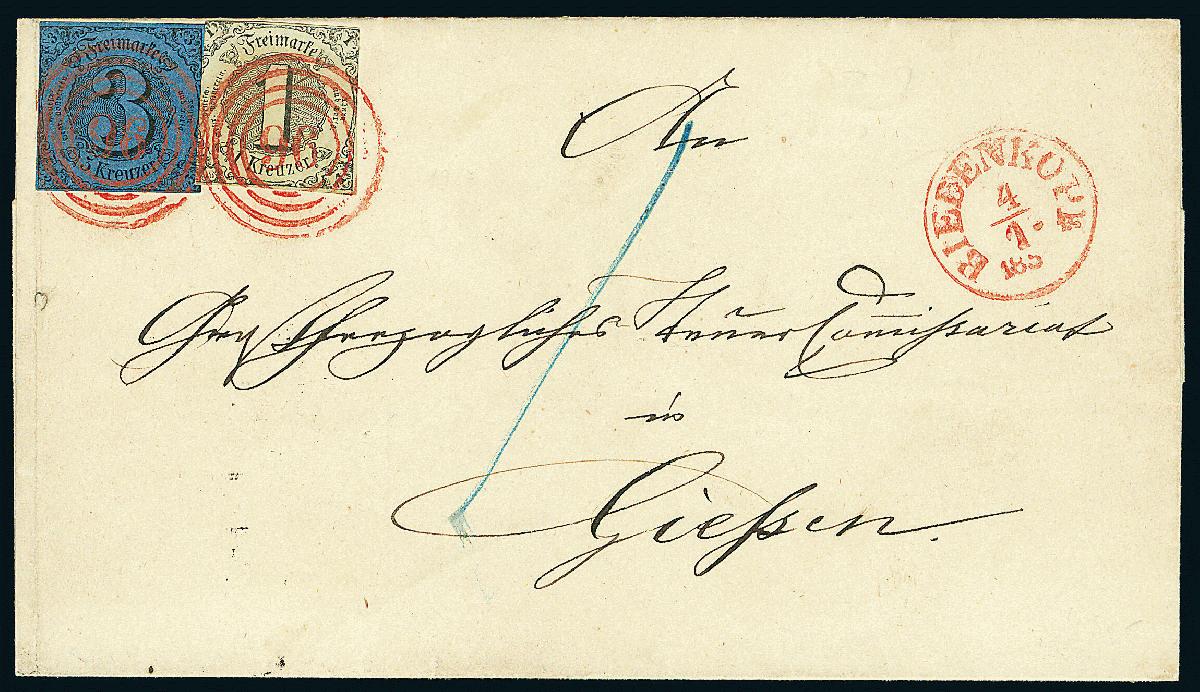 Freimarke
3
Kreuzer.
Freimarke
1
Kreuzer.
96
BIEDENKOPF
4/1
185
An
Großherzogliches Steuer Commissariat
in
Giessen.